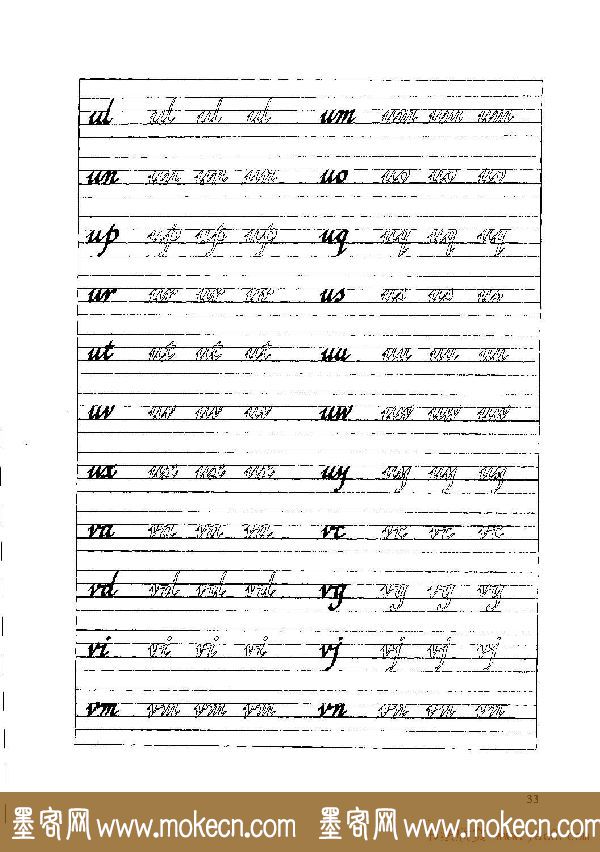 ul ul ul ul um um um um
un un un un uo uo uo uo
up up up up uq uq uq uq
ur ur ur ur us us us us
ut ut ut ut uu uu uu uu
uv uv uv uv uw uw uw uw
ux ux ux ux uy uy uy uy
va va va va vc vc vc vc
vd vd vd vd vg vg vg vg
vi vi vi vi vj vj vj vj
vm vm vm vm vn vn vn vn
33
墨客网 www.mokecn.com 墨客网 www.mokecn.com